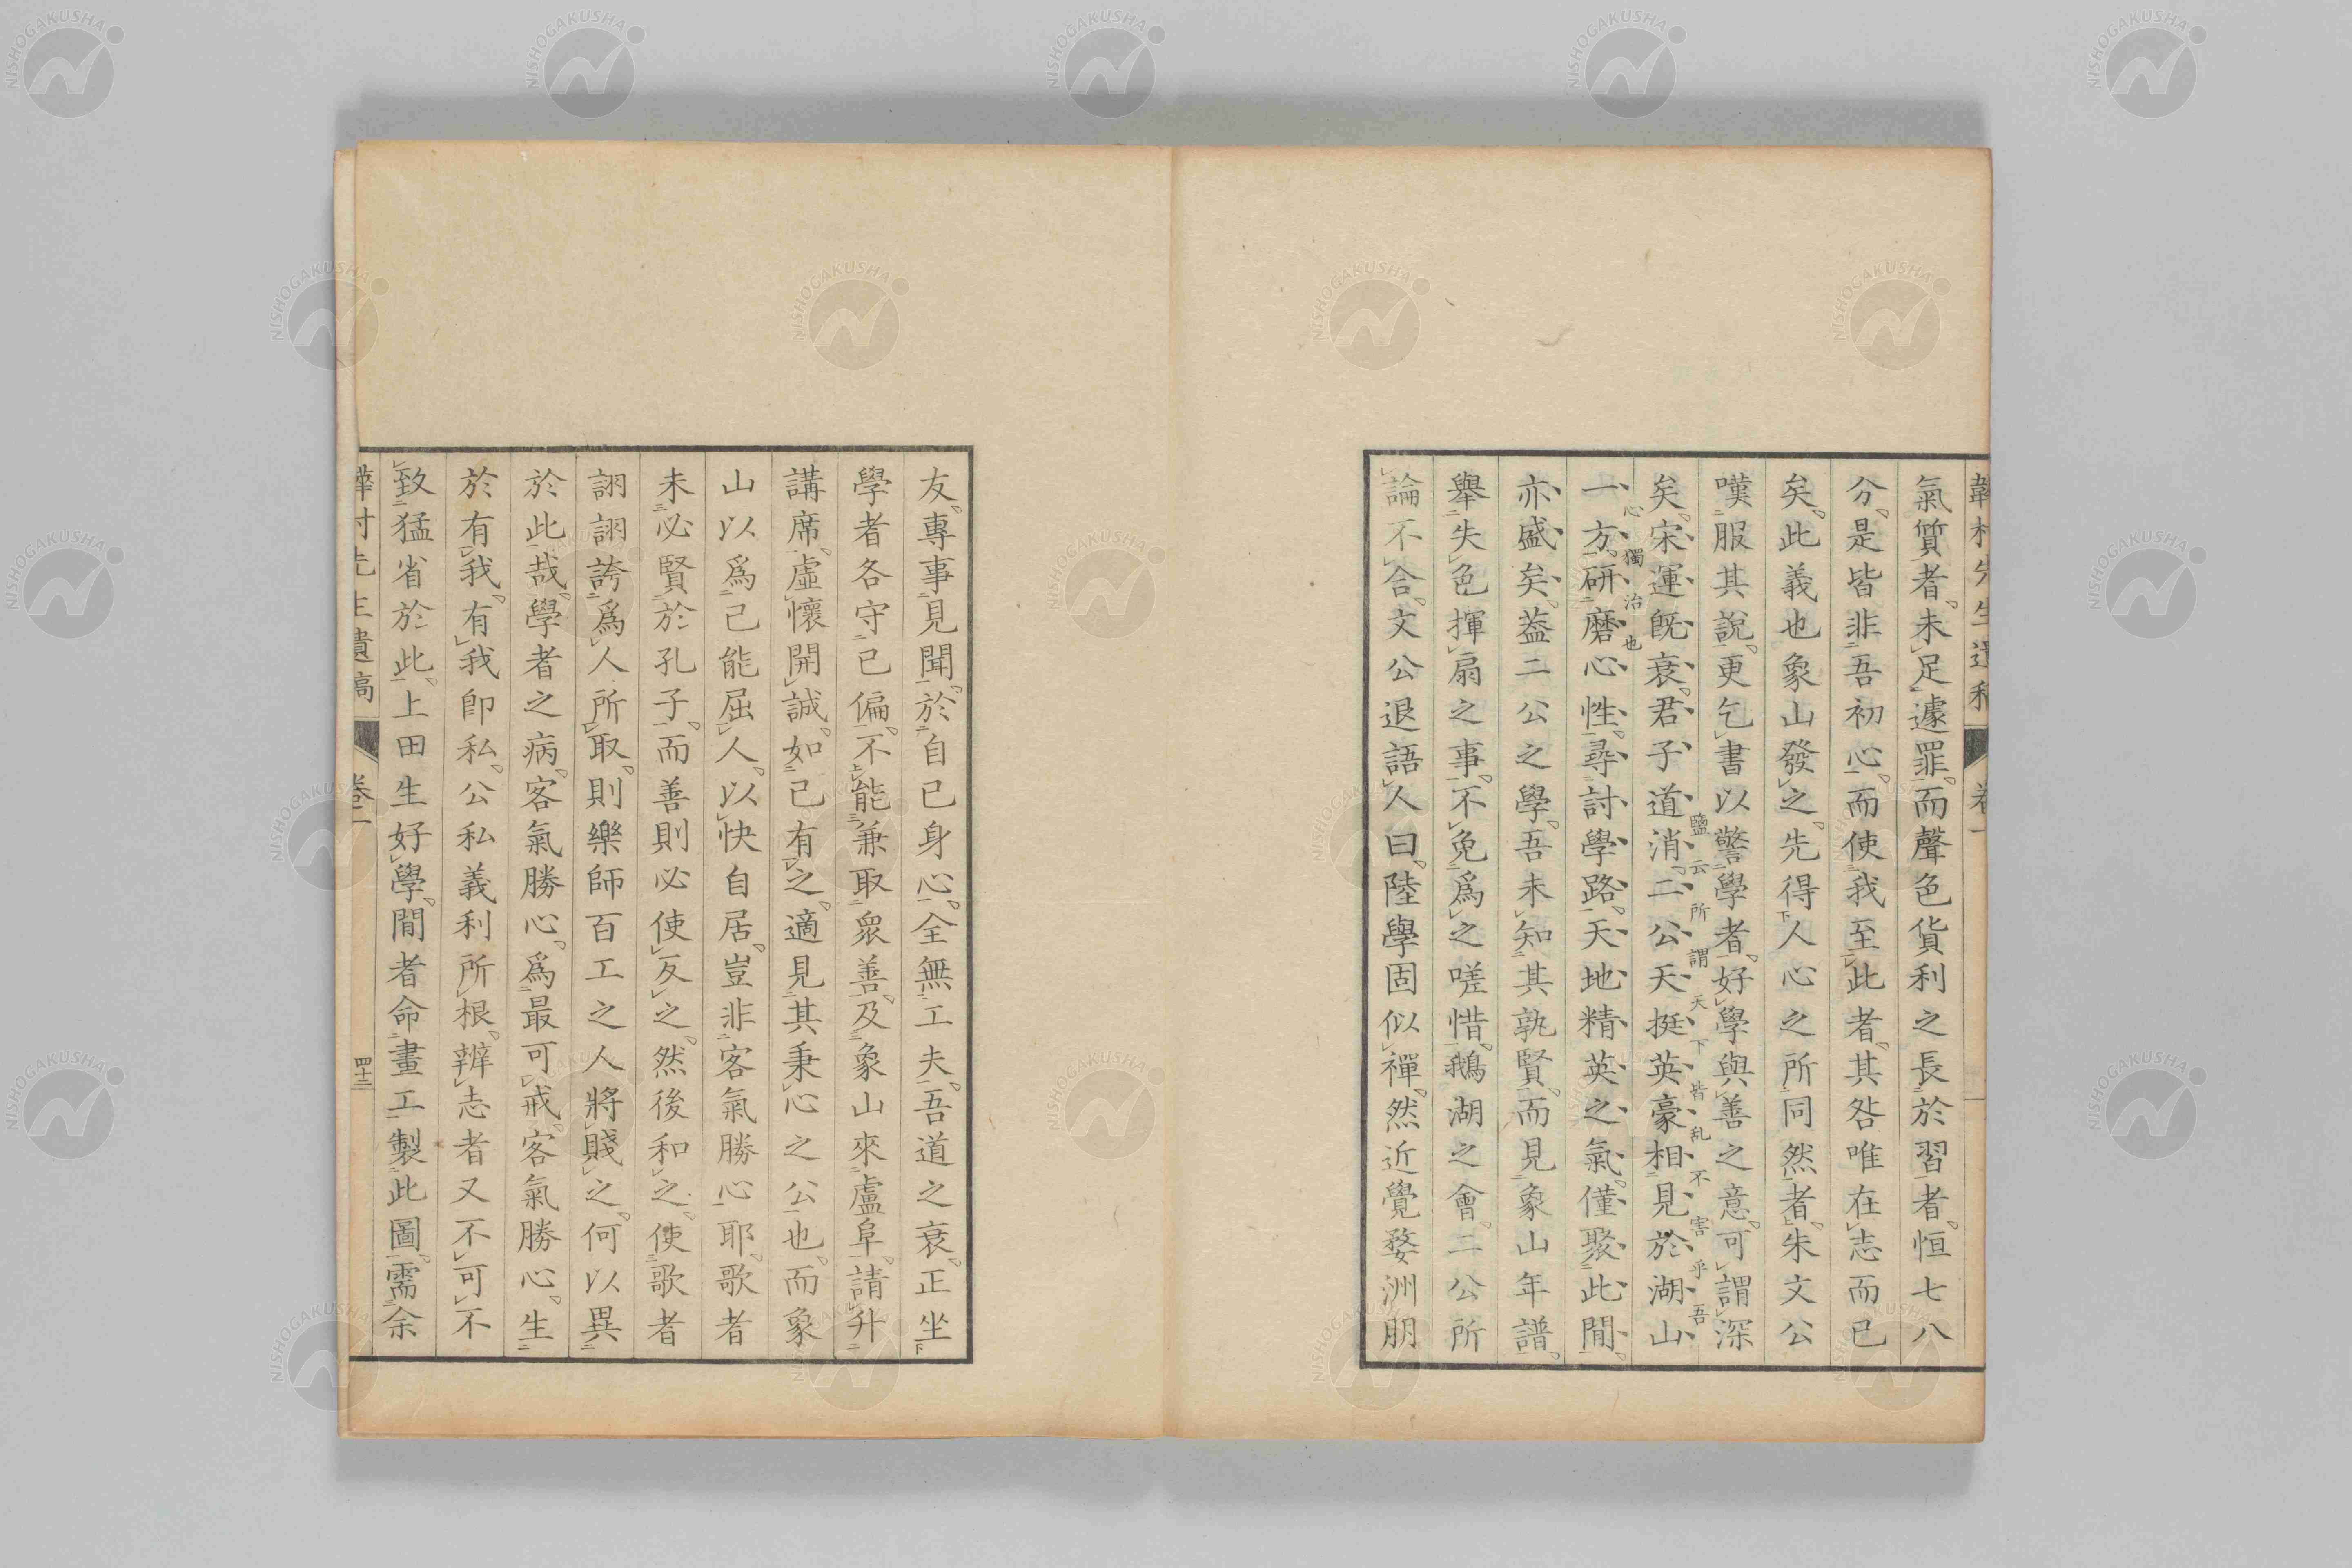 氣質者未足遽罪而聲色貨利之長於習者恒七八
分是皆非吾初心而使我至此者其咎唯在志而已
矣此義也象山發之先得人心之所同然者朱文公
嘆服其說更乞書以警學者好學與善之意可謂深
鹽云所謂天下皆乱不害乎吾
矣宋運既衰君子道消二公天挺英豪相見於湖山
心獨治也
一方研磨心性尋討學路天地精英之氣僅聚此間
亦盛矣葢二公之學吾未知其孰賢而見象山年譜
舉失色揮扇之事不免爲之嗟惜鵝湖之會二公所
論不合文公退語人曰陸學固似禪然近覺婺洲朋
友專事見聞於自己身心全無工夫吾道之衰正坐
學者各守己偏不能兼取衆善及象山來盧阜請升
講席虛懷開誠如己有之適見其秉心之公也而象
山以爲己能屈人以快自居豈非客氣勝心耶歌者
未必賢於孔子而善則必使反之然後和之使歌者
詡詡誇爲人所取則樂師百工之人將賤之何以異
於此哉學者之病客氣勝心爲最可戒客氣勝心生
於有我有我卽私公私義利所根辨志者又不可不
致猛省於此上田生好學間者命畫工製此圖需余
先生遺稿
卷二
四十三